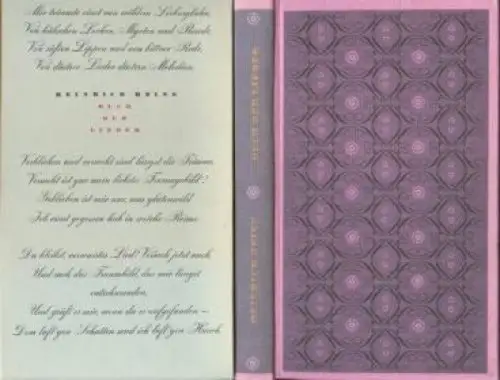 Mir träumte einst von wildem Liebesglühn,
Von hübschen Locken, Myrten und Resede,
Von süßen Lippen und von bittrer Rede,
Von düstrer Lieder düstern Melodien.
HEINRICH HEINE
BUCH
DER
LIEDER
Verblichen und verweht sind längst die Träume,
Verweht ist gar mein liebstes Traumgebild!
Geblieben ist mir nur, was glutenwild
Ich einst gegossen hab in weiche Reime.
Du bliebst, verwaistes Lied! Verweh jetzt auch,
Und such das Traumbild, das mir längst
entschwunden,
Und grüß es mir, wenn du es aufgefunden –
Dem luft'gen Schatten send ich luft'gen Hauch.
BUCH DER LIEDER
HEINRICH HEINE